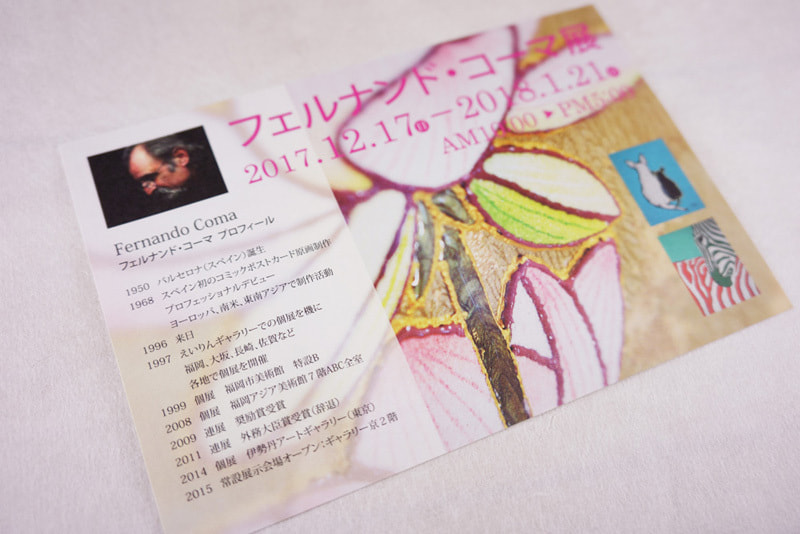 フェルナンド・コーマ展
2017.12.17㊐ー2018.1.21㊐
AM10:00 ▶ PM5:00
Fernando Coma
フェルナンド・コーマ プロフィール
1950 バルセロナ(スペイン)誕生
1968 スペイン初のコミックポストカード原画制作
プロフェッショナルデビュー
ヨーロッパ、南米、東南アジアで制作活動
1996 来日
1997 えいりんギャラリーでの個展を機に
福岡、大坂、長崎、佐賀など
各地で個展を開催
1999 個展 福岡市美術館 特設B
2008 個展 福岡アジア美術館7階ABC全室
2009 連展 奨励賞受賞
2011 連展 外務大臣賞受賞(辞退)
2014 個展 伊勢丹アートギャラリー(東京)
2015 常設展示会場オープン:ギャラリー京2階